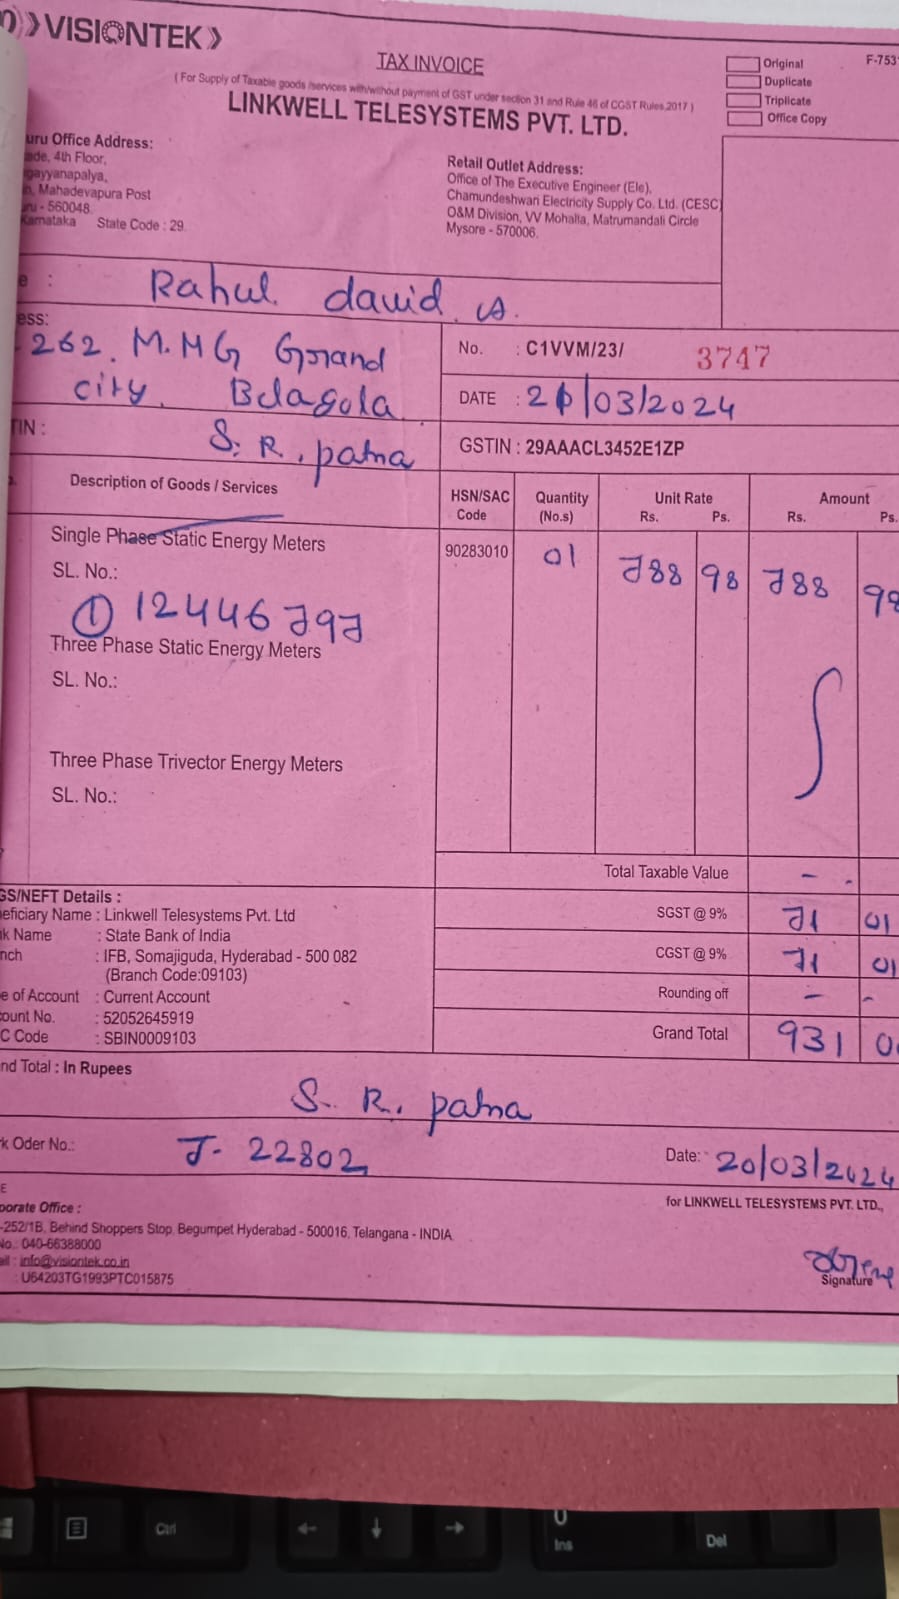 VISIONTEK
TAX INVOICE
( For Supply of Taxable goods /services with/without payment of GST under section 31 and Rule 46 of CGST Rules,2017 )
LINKWELL TELESYSTEMS PVT. LTD.
Original
Duplicate
Triplicate
Office Copy
F-753
uru Office Address:
ade, 4th Floor,
gayyanapalya,
n, Mahadevapura Post
uru - 560048.
Karnataka State Code : 29.
Retail Outlet Address:
Office of The Executive Engineer (Ele),
Chamundeshwari Electricity Supply Co. Ltd. (CESC)
O&M Division, VV Mohalla, Matrumandali Circle
Mysore - 570006.
e : Rahul david. A.
ess:
262. M.MG Grand
city. Belagola
S. R. patna
TIN :
No. : C1VVM/23/ 3747
DATE : 20/03/2024
GSTIN : 29AAACL3452E1ZP
Description of Goods / Services
HSN/SAC Code
Quantity (No.s)
Unit Rate
Rs. Ps.
Amount
Rs. Ps.
Single Phase Static Energy Meters
90283010 01 788 98 788 98
SL. No.:
① 12446797
Three Phase Static Energy Meters
SL. No.:
Three Phase Trivector Energy Meters
SL. No.:
Total Taxable Value - .
SGST @ 9% 71 01
CGST @ 9% 71 01
Rounding off - -
Grand Total 931 0
GS/NEFT Details :
eficiary Name : Linkwell Telesystems Pvt. Ltd
k Name : State Bank of India
nch : IFB, Somajiguda, Hyderabad - 500 082
(Branch Code:09103)
e of Account : Current Account
ount No. : 52052645919
C Code : SBIN0009103
nd Total : In Rupees
S. R. patna
k Oder No.: J- 22802
Date: 20/03/2024
E
porate Office :
-252/1B, Behind Shoppers Stop, Begumpet Hyderabad - 500016, Telangana - INDIA
No.: 040-66388000
ail : info@visiontek.co.in
: U64203TG1993PTC015875
for LINKWELL TELESYSTEMS PVT. LTD.,
Signature
Ctrl
←
↓
→
0
Ins
Del